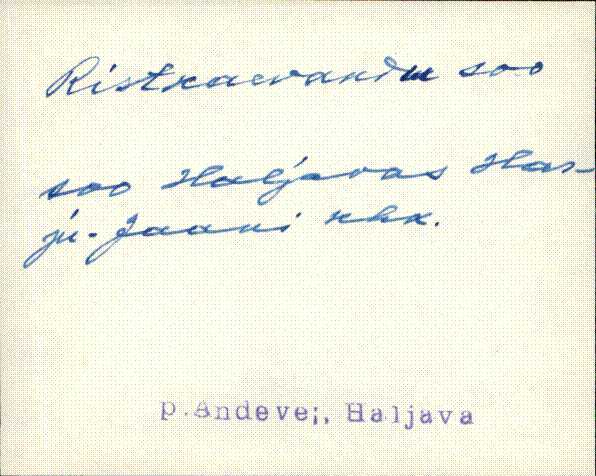 Ristkaevandu soo
soo Haljavas Har-
ju-Jaani khk.
p.Andevei, Haljava